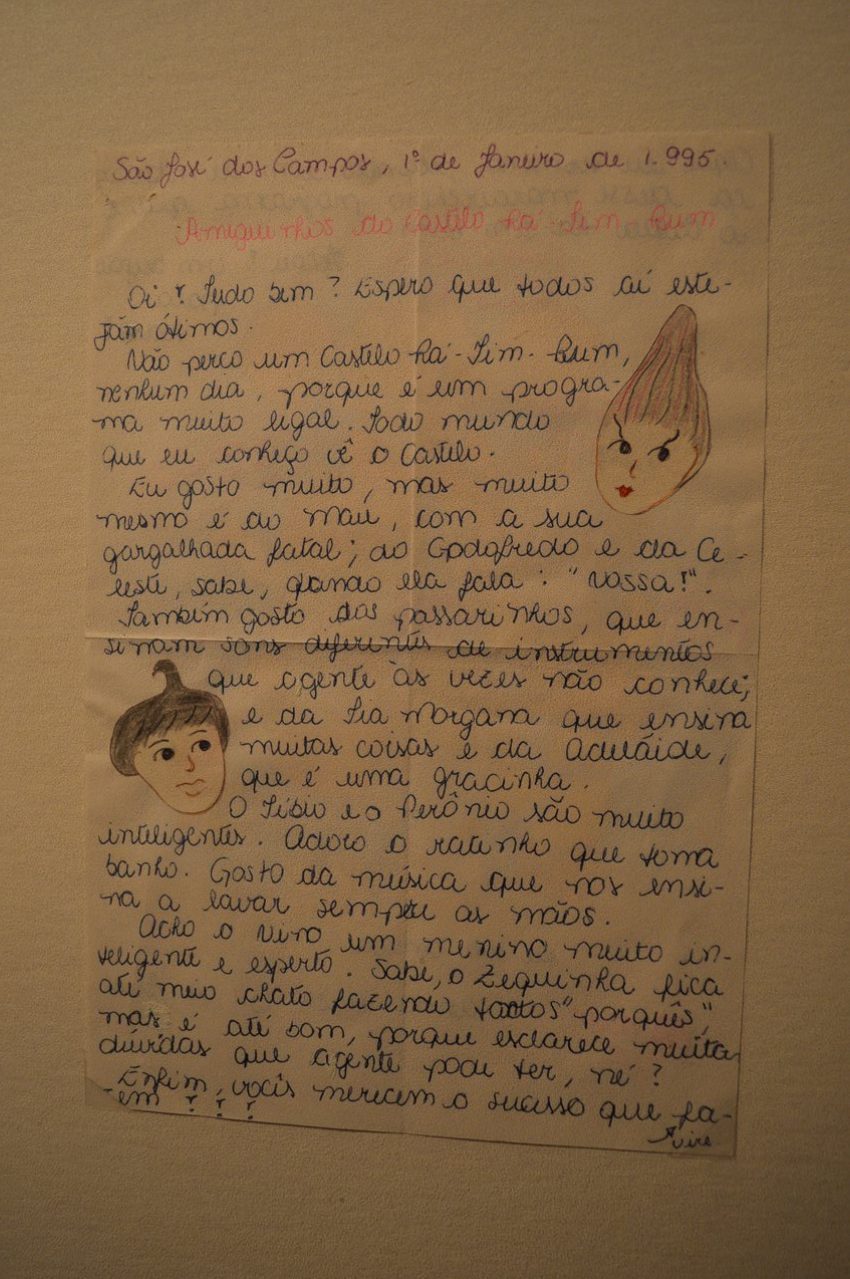 São José dos Campos, 1º de Janeiro de 1.995.
Amiguinhos do Castelo Rá-Tim-Bum
Oi! Tudo bem? Espero que todos aí este-
jam ótimos.
Não perco um Castelo Rá-Tim-Bum,
nenhum dia, porque é um progra-
ma muito legal. Todo mundo
que eu conheço vê o Castelo.
Eu gosto muito, mas muito
mesmo é do Mau, com a sua
gargalhada fatal; do Godofredo e da Ce-
leste, sabe, quando ela fala: "Nossa!".
Também gosto dos passarinhos, que en-
sinam sons diferentes de instrumentos
que agente às vezes não conhece;
e da Tia Morgana que ensina
muitas coisas e da Adeláide,
que é uma gracinha.
O Tíbio e o Perônio são muito
inteligentes. Adoro o ratinho que toma
banho. Gosto da música que nos ensi-
na a lavar sempre as mãos.
Acho o Nino um menino muito in-
teligente e esperto. Sabe, o Zequinha fica
até meio chato fazendo tantos "porquês",
mas é até bom, porque esclarece muita
dúvidas que agente pode ter, né?
Enfim, vocês merecem o sucesso que fa-
em!!!
Vire